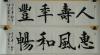 人壽年豐
惠風和暢